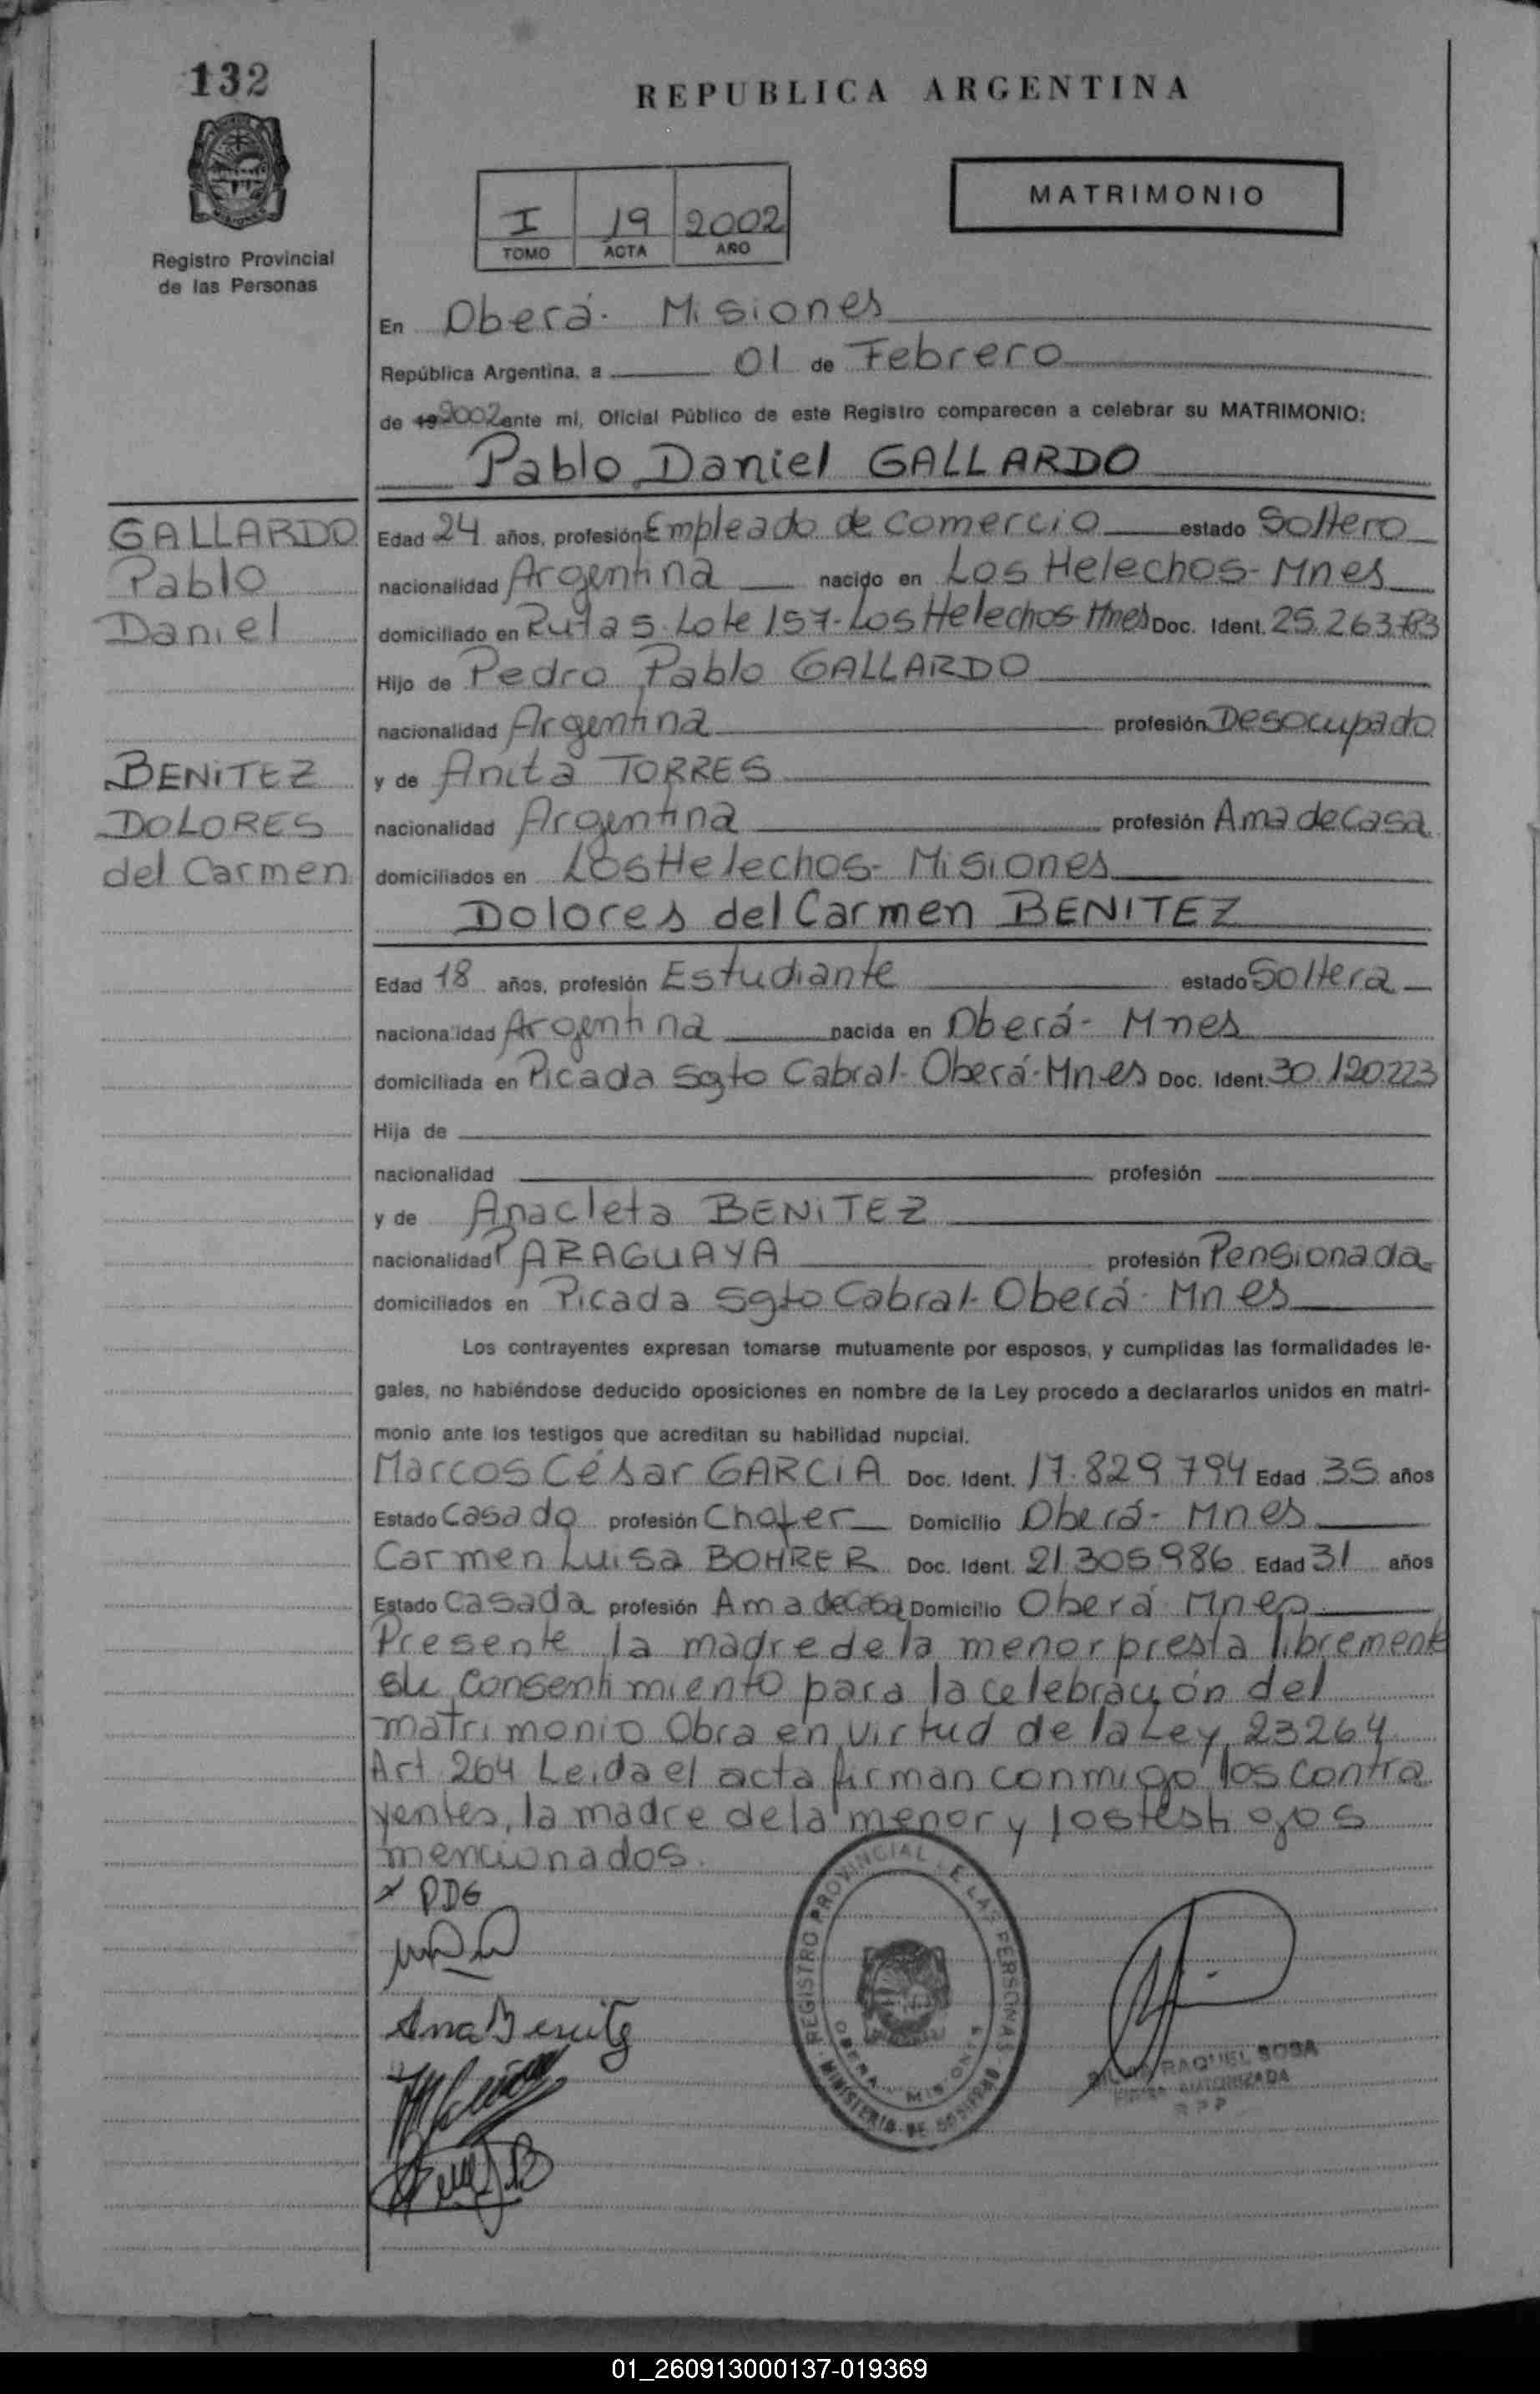 132
REPUBLICA ARGENTINA
MATRIMONIO
I 19 2002
TOMO ACTA AÑO
Registro Provincial
de las Personas
En Oberá - Misiones
República Argentina, a 01 de Febrero
de 19 2002 ante mi, Oficial Público de este Registro comparecen a celebrar su MATRIMONIO:
Pablo Daniel GALLARDO
GALLARDO
Pablo
Daniel
BENITEZ
DOLORES
del Carmen
Edad 24 años, profesión Empleado de comercio estado Soltero
nacionalidad Argentina nacido en Los Helechos - Mnes
domiciliado en Ruta 5 - Lote 157 - Los Helechos - Mnes Doc. Ident. 25.263.783
Hijo de Pedro Pablo GALLARDO
nacionalidad Argentina profesión Desocupado
y de Anita TORRES
nacionalidad Argentina profesión Ama de casa
domiciliados en Los Helechos - Misiones
Dolores del Carmen BENITEZ
Edad 18 años, profesión Estudiante estado Soltera
nacionalidad Argentina nacida en Oberá - Mnes
domiciliada en Picada Sgto Cabral - Oberá - Mnes Doc. Ident. 30.120.223
Hija de
nacionalidad profesión
y de Anacleta BENITEZ
nacionalidad PARAGUAYA profesión Pensionada
domiciliados en Picada Sgto Cabral - Oberá - Mnes
Los contrayentes expresan tomarse mutuamente por esposos, y cumplidas las formalidades le-
gales, no habiéndose deducido oposiciones en nombre de la Ley procedo a declararlos unidos en matri-
monio ante los testigos que acreditan su habilidad nupcial.
Marcos César GARCIA Doc. Ident. 17.829.794 Edad 35 años
Estado Casado profesión Chofer Domicilio Oberá - Mnes
Carmen Luisa BOHRER Doc. Ident. 21.305.986 Edad 31 años
Estado Casada profesión Ama de casa Domicilio Oberá - Mnes
Presente la madre de la menor presta libremente
su consentimiento para la celebración del
matrimonio Obra en virtud de la Ley 23264
Art 264 Leida el acta firman conmigo los contra
yentes, la madre de la menor y los testigos
mencionados.
x PDG
Ana Benitez
REGISTRO PROVINCIAL DE LAS PERSONAS
OBERA - MISIONES
MINISTERIO DE GOBIERNO
RAQUEL SOSA
FIRMA AUTORIZADA
R P P
01_260913000137-019369